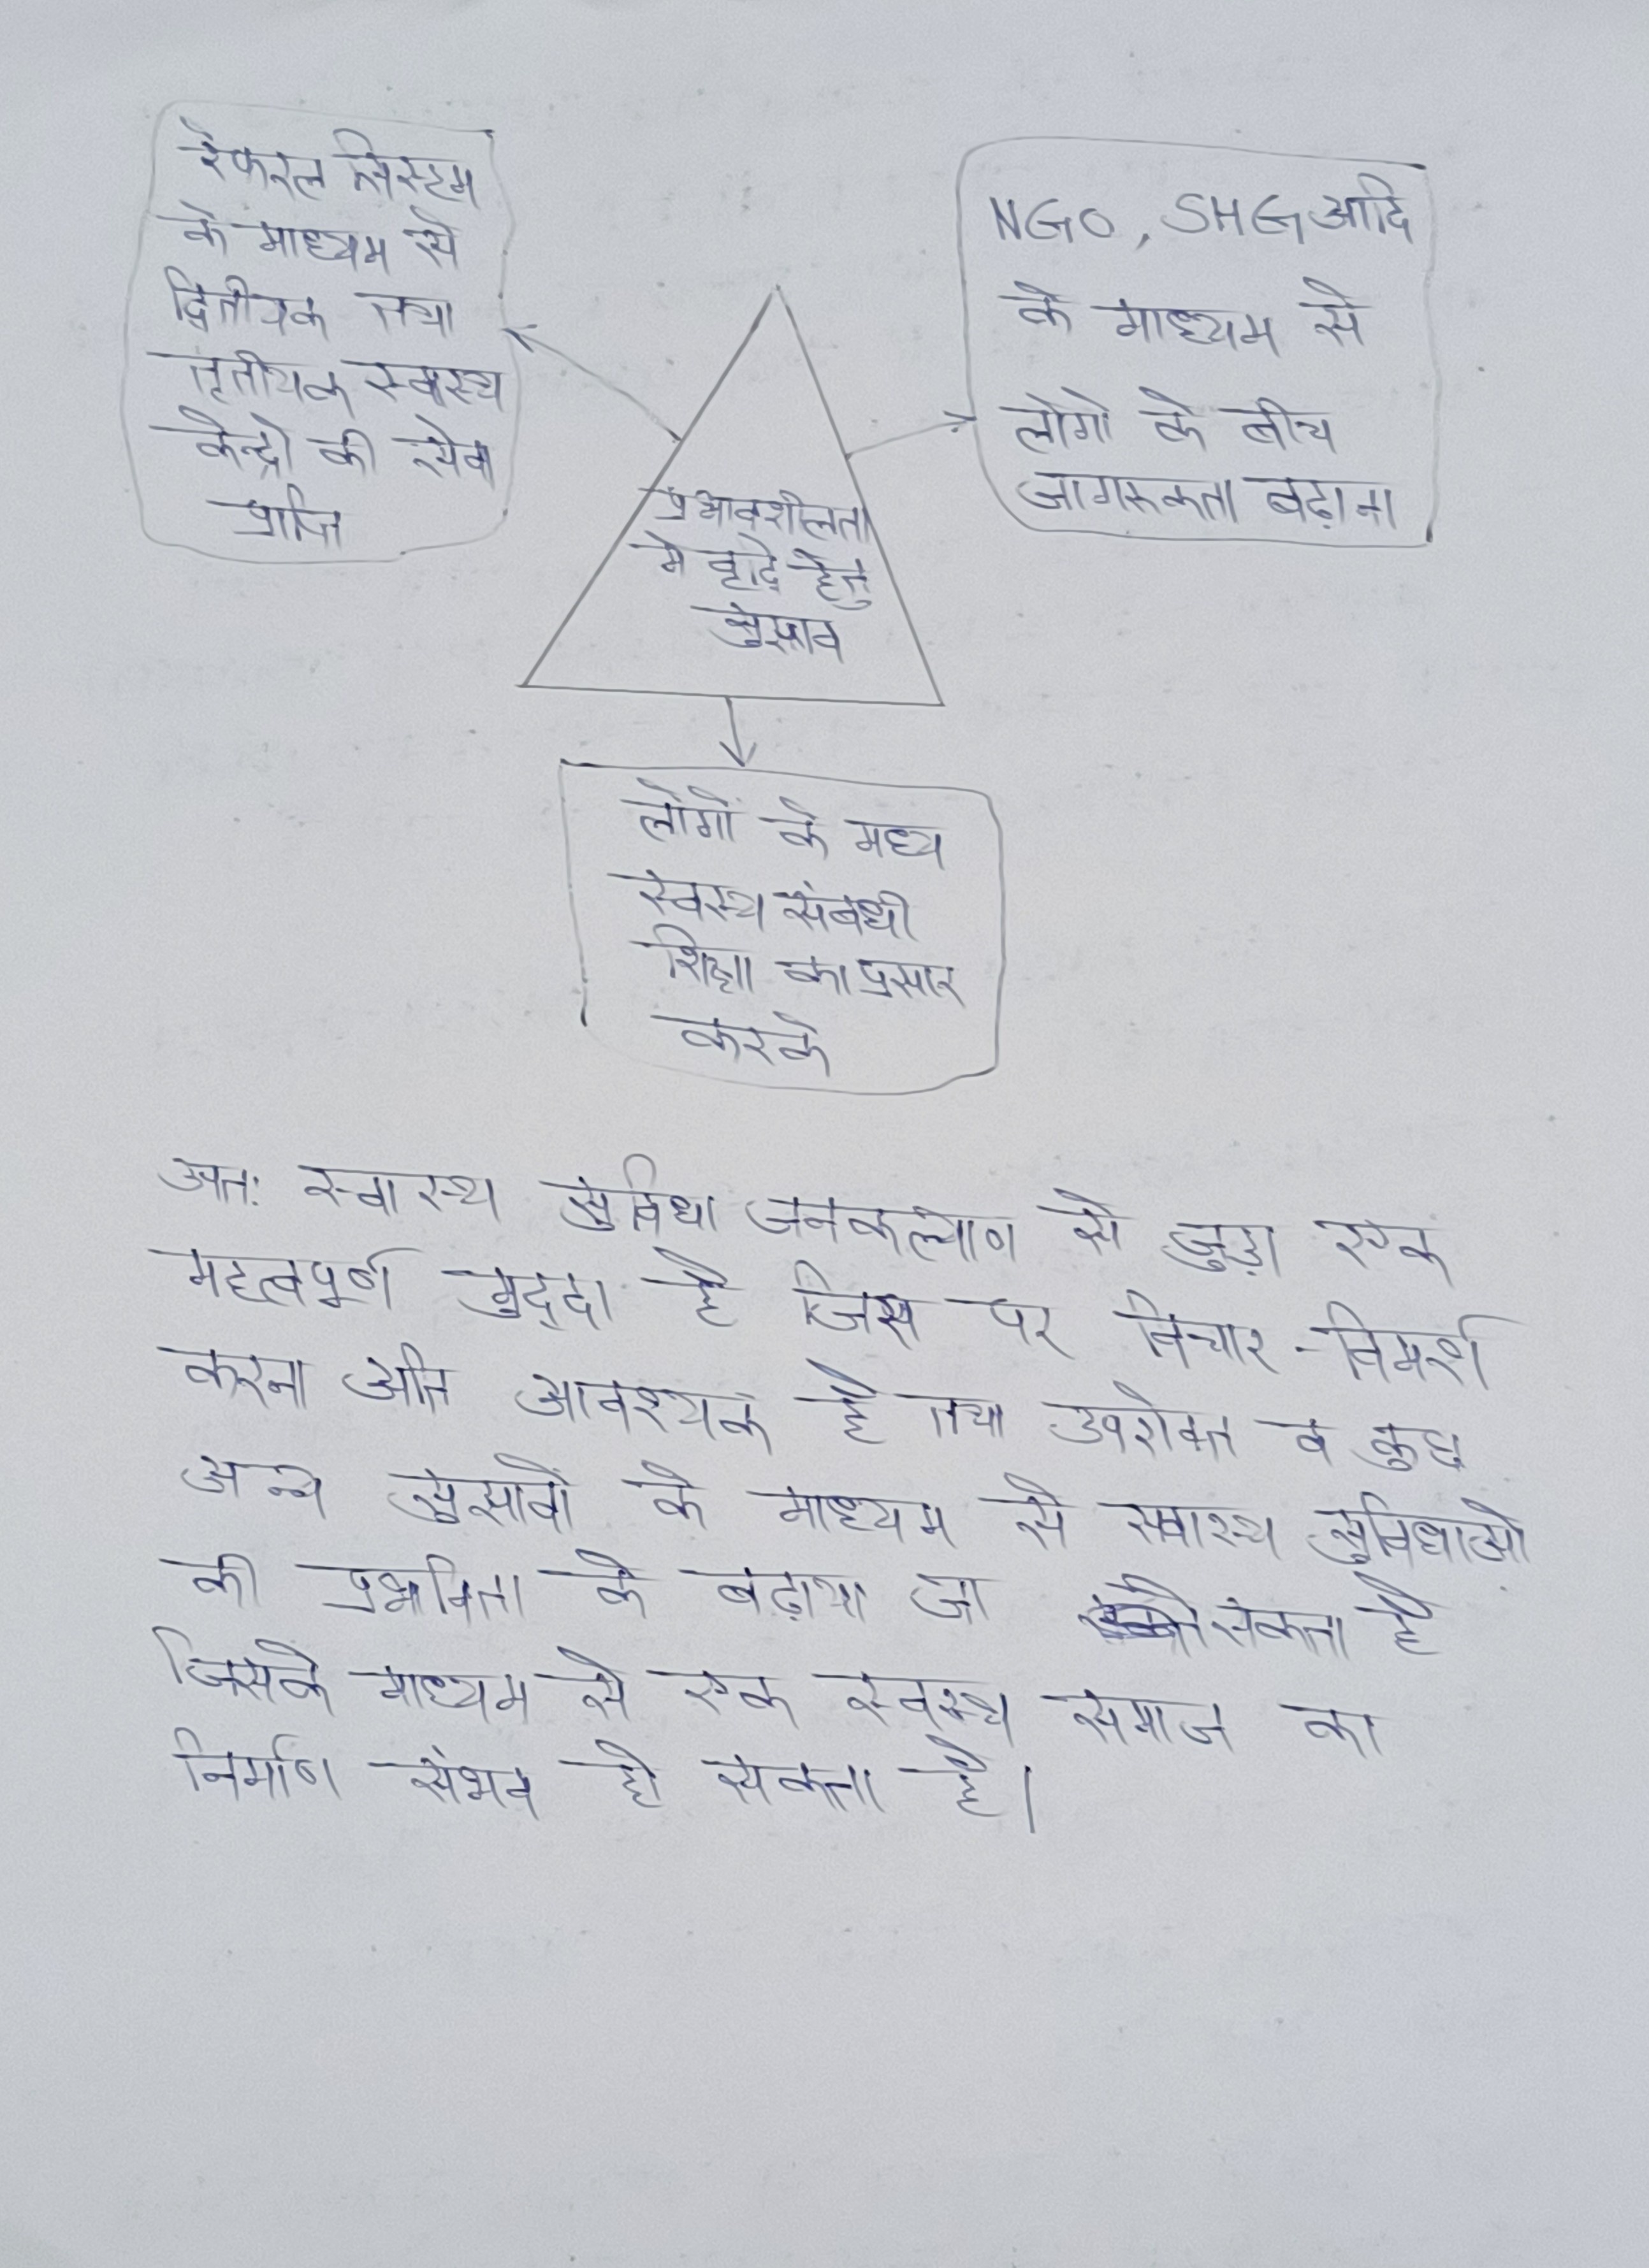 रेफरल सिस्टम
के माध्यम से
द्वितीयक तथा
तृतीयक स्वास्थ्य
केन्द्रो की सेवा
प्राप्ति
NGO, SHG आदि
के माध्यम से
लोगो के बीच
जागरूकता बढ़ाना
प्रभावशीलता
मे वृद्धि हेतु
सुझाव
लोगों के मध्य
स्वस्थ्य संबधी
शिक्षा का प्रसार
करके
अतः स्वास्थ्य सुविधा जनकल्याण से जुड़ा एक
महत्वपूर्ण मुद्दा है जिस पर विचार-विमर्श
करना अति आवश्यक है तथा उपरोक्त व कुछ
अन्य सुझावों के माध्यम से स्वास्थ्य सुविधाओ
की प्रभाविता के बढ़ाया जा सकता है
जिसके माध्यम से एक स्वस्थ्य समाज का
निर्माण संभव हो सकता है।